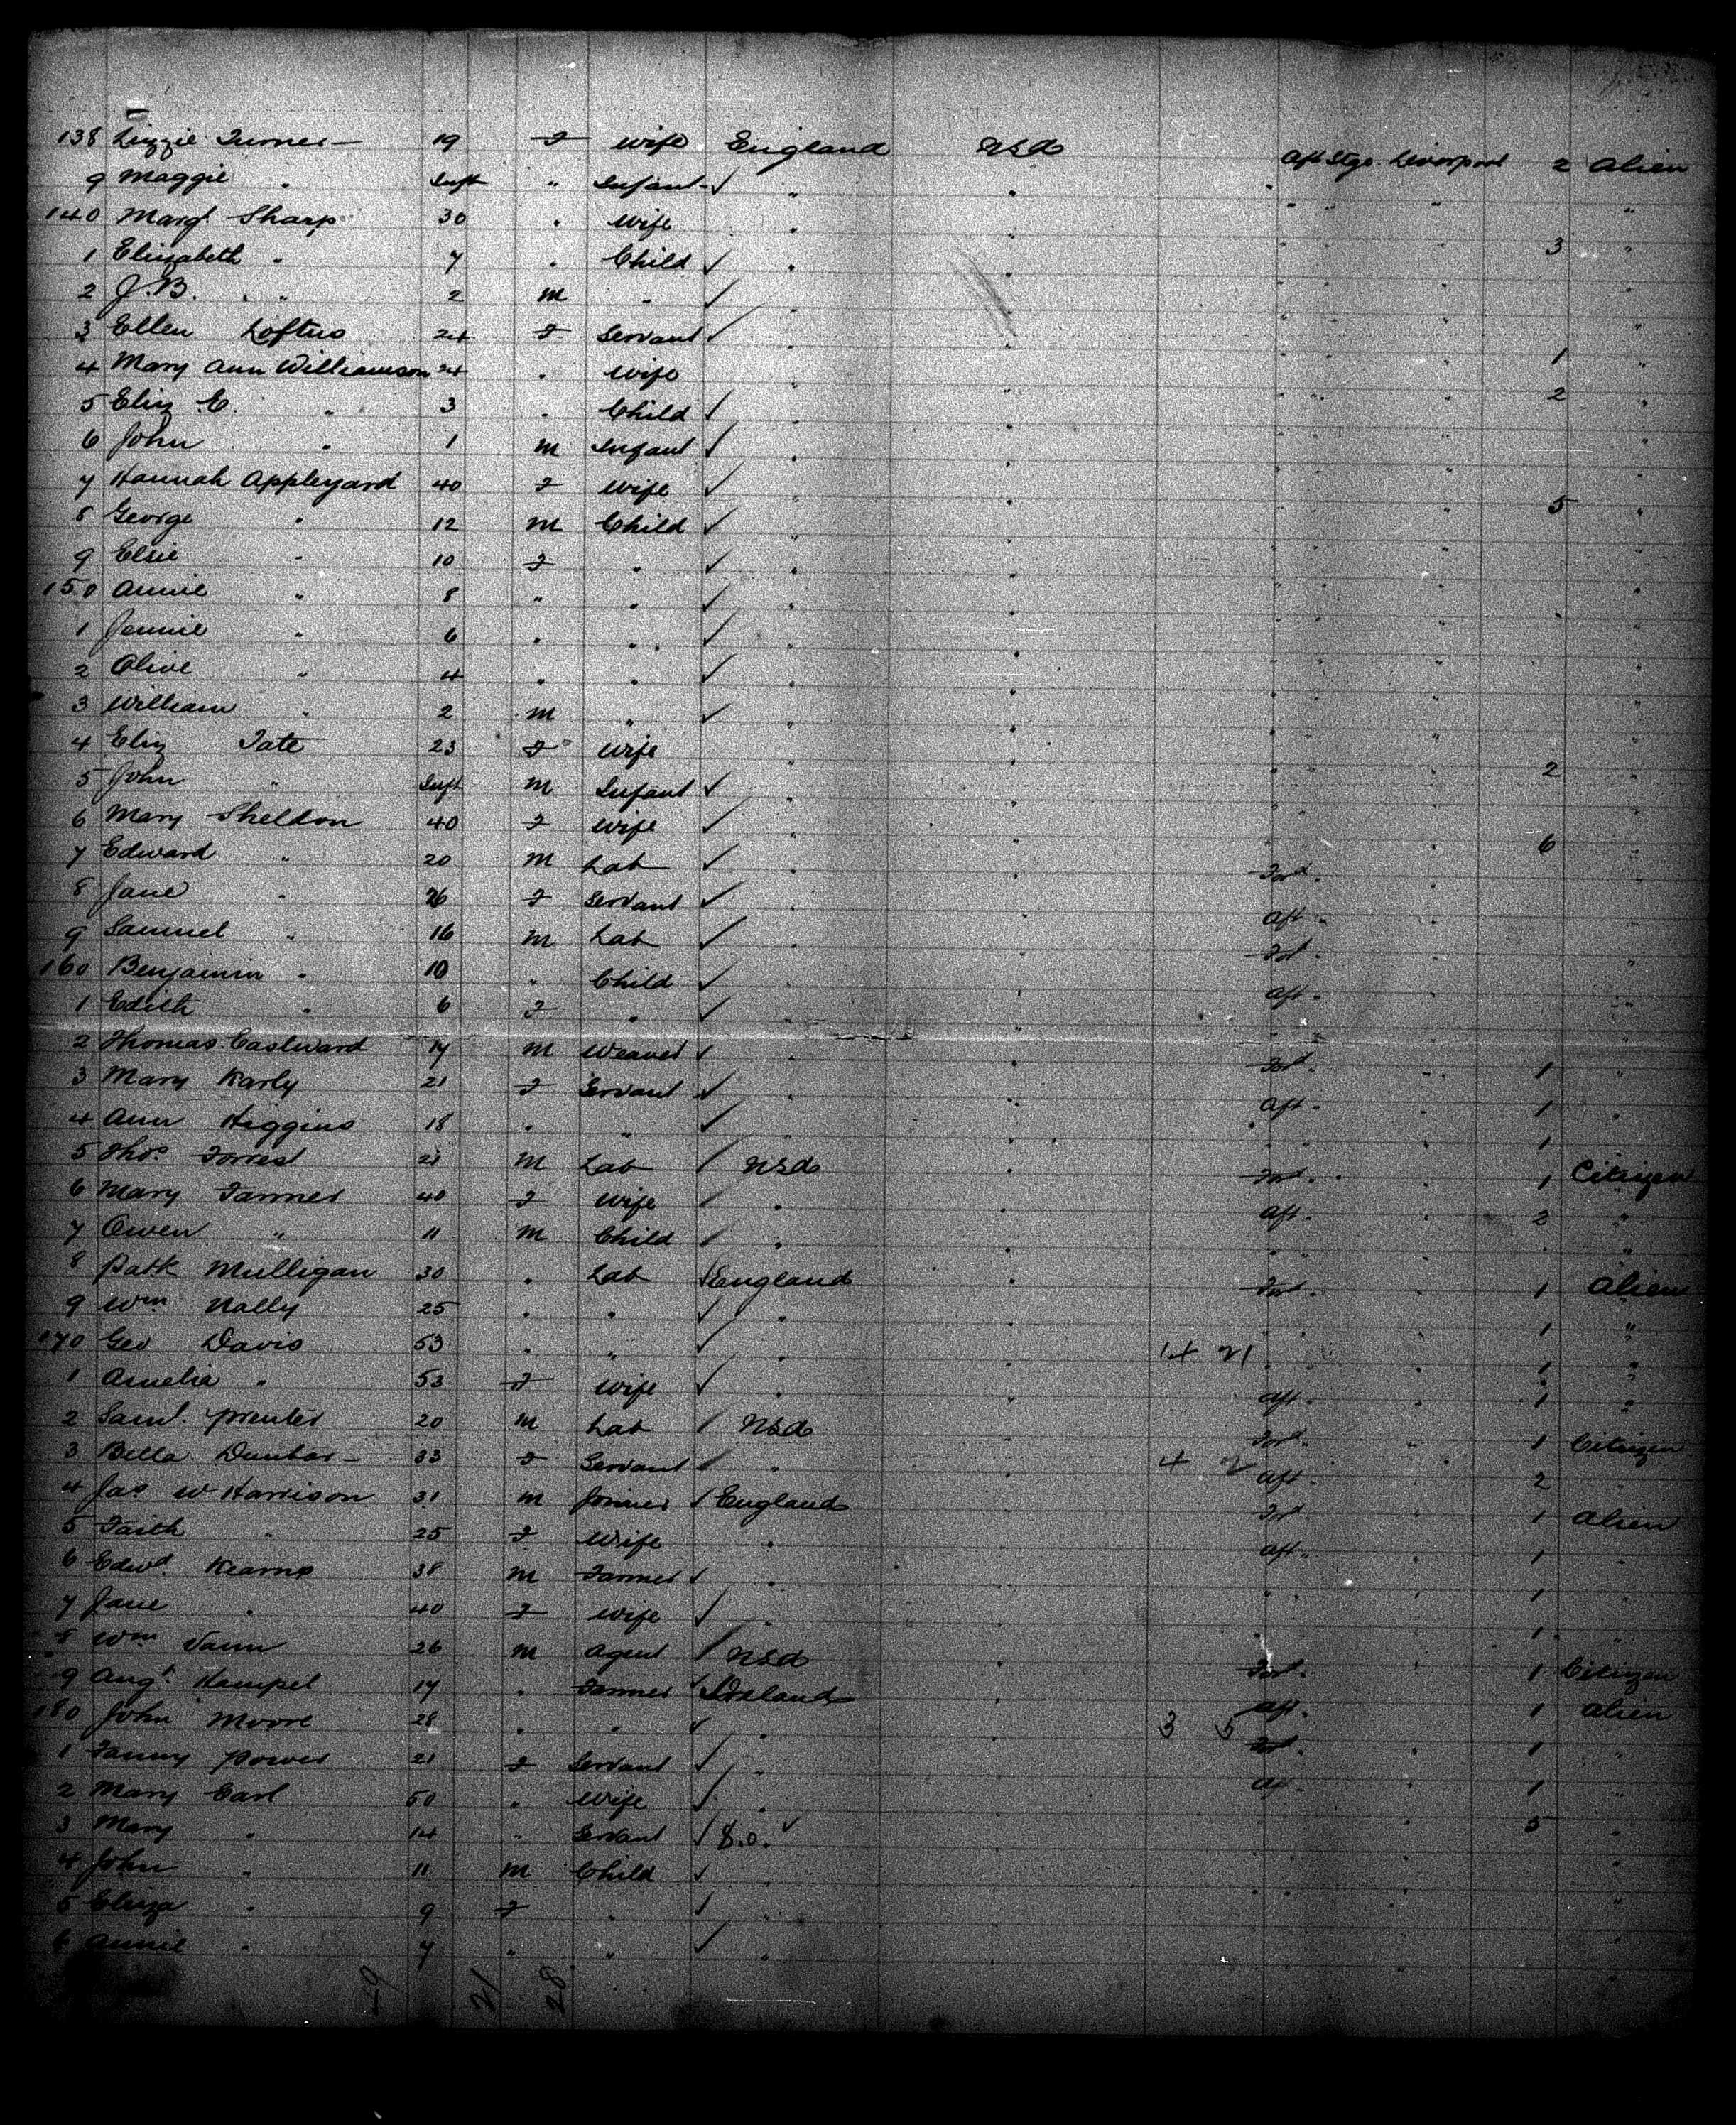 138 Lizzie Turner 19 F wife England USA Aft Stge Liverpool 2 Alien
9 Maggie " Inft " Infant ✓ " " " " " "
140 Margt. Sharp 30 " wife " " " " " 3 "
1 Elizabeth " 7 " Child ✓ " " " " " "
2 J.B. " 2 m " ✓ " " " " " "
3 Ellen Loftus 24 F Servant ✓ " " " " " 1 "
4 Mary Ann Williamson 24 " wife " " " " " 2 "
5 Eliz E. " 3 " Child ✓ " " " " " "
6 John " 1 m Infant ✓ " " " " " "
7 Hannah Appleyard 40 F wife ✓ " " " " " 5 "
8 George " 12 m Child ✓ " " " " " "
9 Elsie " 10 F " ✓ " " " " " "
150 Annie " 8 " " ✓ " " " " " "
1 Jennie " 6 " " ✓ " " " " " "
2 Olive " 4 " " ✓ " " " " " "
3 William " 2 m " ✓ " " " " " "
4 Eliz Tate 23 F wife " " " " " 2 "
5 John " Inft m Infant ✓ " " " " " "
6 Mary Sheldon 40 F wife ✓ " " " " " 6 "
7 Edward " 20 m Lab ✓ " " Ford " " "
8 Jane " 26 F Servant ✓ " " Aft " " "
9 Samuel " 16 m Lab ✓ " " Ford " " "
160 Benjamin " 10 " Child ✓ " " Aft " " "
1 Edith " 6 F " ✓ " " " " " "
2 Thomas Eastward 17 m Weaver ✓ " " Ford " " 1 "
3 Mary Karly 21 F Servant ✓ " " Aft " " 1 "
4 Ann Higgins 18 " " ✓ " " " " " 1 "
5 Thos. Forrest 21 m Lab ✓ USA " Ford " " 1 Citizen
6 Mary Farmer 40 F wife ✓ " " Aft " " 2 "
7 Owen " 11 m Child ✓ " " " " " "
8 Patk Mulligan 30 " Lab ✓ England " Ford " " 1 Alien
9 Wm Nally 25 " " ✓ " " " " " 1 "
170 Geo Davis 53 " " ✓ " " 14 21 " " " 1 "
1 Amelia " 53 F wife ✓ " " Aft " " 1 "
2 Saml. 20 m Lab ✓ USA " Ford " " 1 Citizen
3 Bella Dunbar 33 F Servant ✓ " " 4 2 Aft " " 2 "
4 Jas W Harrison 31 m Joiner ✓ England " Ford " " 1 Alien
5 Faith " 25 F Wife " " Aft " " 1 "
6 Edwd. Kearns 38 m Farmer ✓ " " " " " 1 "
7 Jane " 40 F wife ✓ " " " " " 1 "
8 Wm Vann 26 m Agent ✓ USA " Ford " " 1 Citizen
9 Augt. Hampel 17 " Farmer ✓ Ireland " Aft " " 1 Alien
180 John Moore 28 " " ✓ " " 3 5 Ford " " 1 "
1 Fanny Power 21 F Servant ✓ " " Aft " " 1 "
2 Mary Earl 50 " Wife ✓ " " " " " 5 "
3 Mary " 14 " Servant ✓ S.O. ✓ " " " " "
4 John " 11 m Child ✓ " " " " "
5 Eliza " 9 F " ✓ " " " " " "
6 Annie " 7 " " ✓ " " " " " "
29 21 28